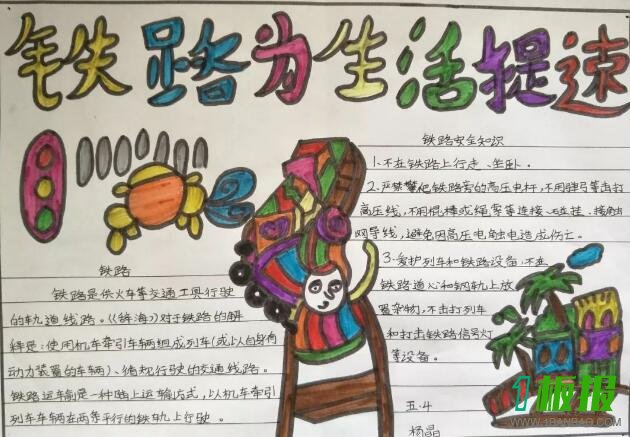 铁路为生活提速
铁路
铁路是供火车等交通工具行驶
的轨道线路。《辞海》对于铁路的解
释是：使用机车牵引车辆组成列车(或以自身有
动力装置的车辆)、循规行驶的交通线路。
铁路运输是一种陆上运输方式，以机车牵引
列车车辆在两条平行的铁轨上行驶。
铁路安全知识
1、不在铁路上行走、坐卧。
2、严禁攀爬铁路旁的高压电杆，不用弹弓等击打
高压线，不用棍棒或绳索等连接
网导线，避免因高压电触电造成伤亡。
3、爱护列车和铁路设备，不在
铁路道心和钢轨上放
置杂物，不击打列车
和打击铁路信号灯
等设备。
五.4
杨晶
板报